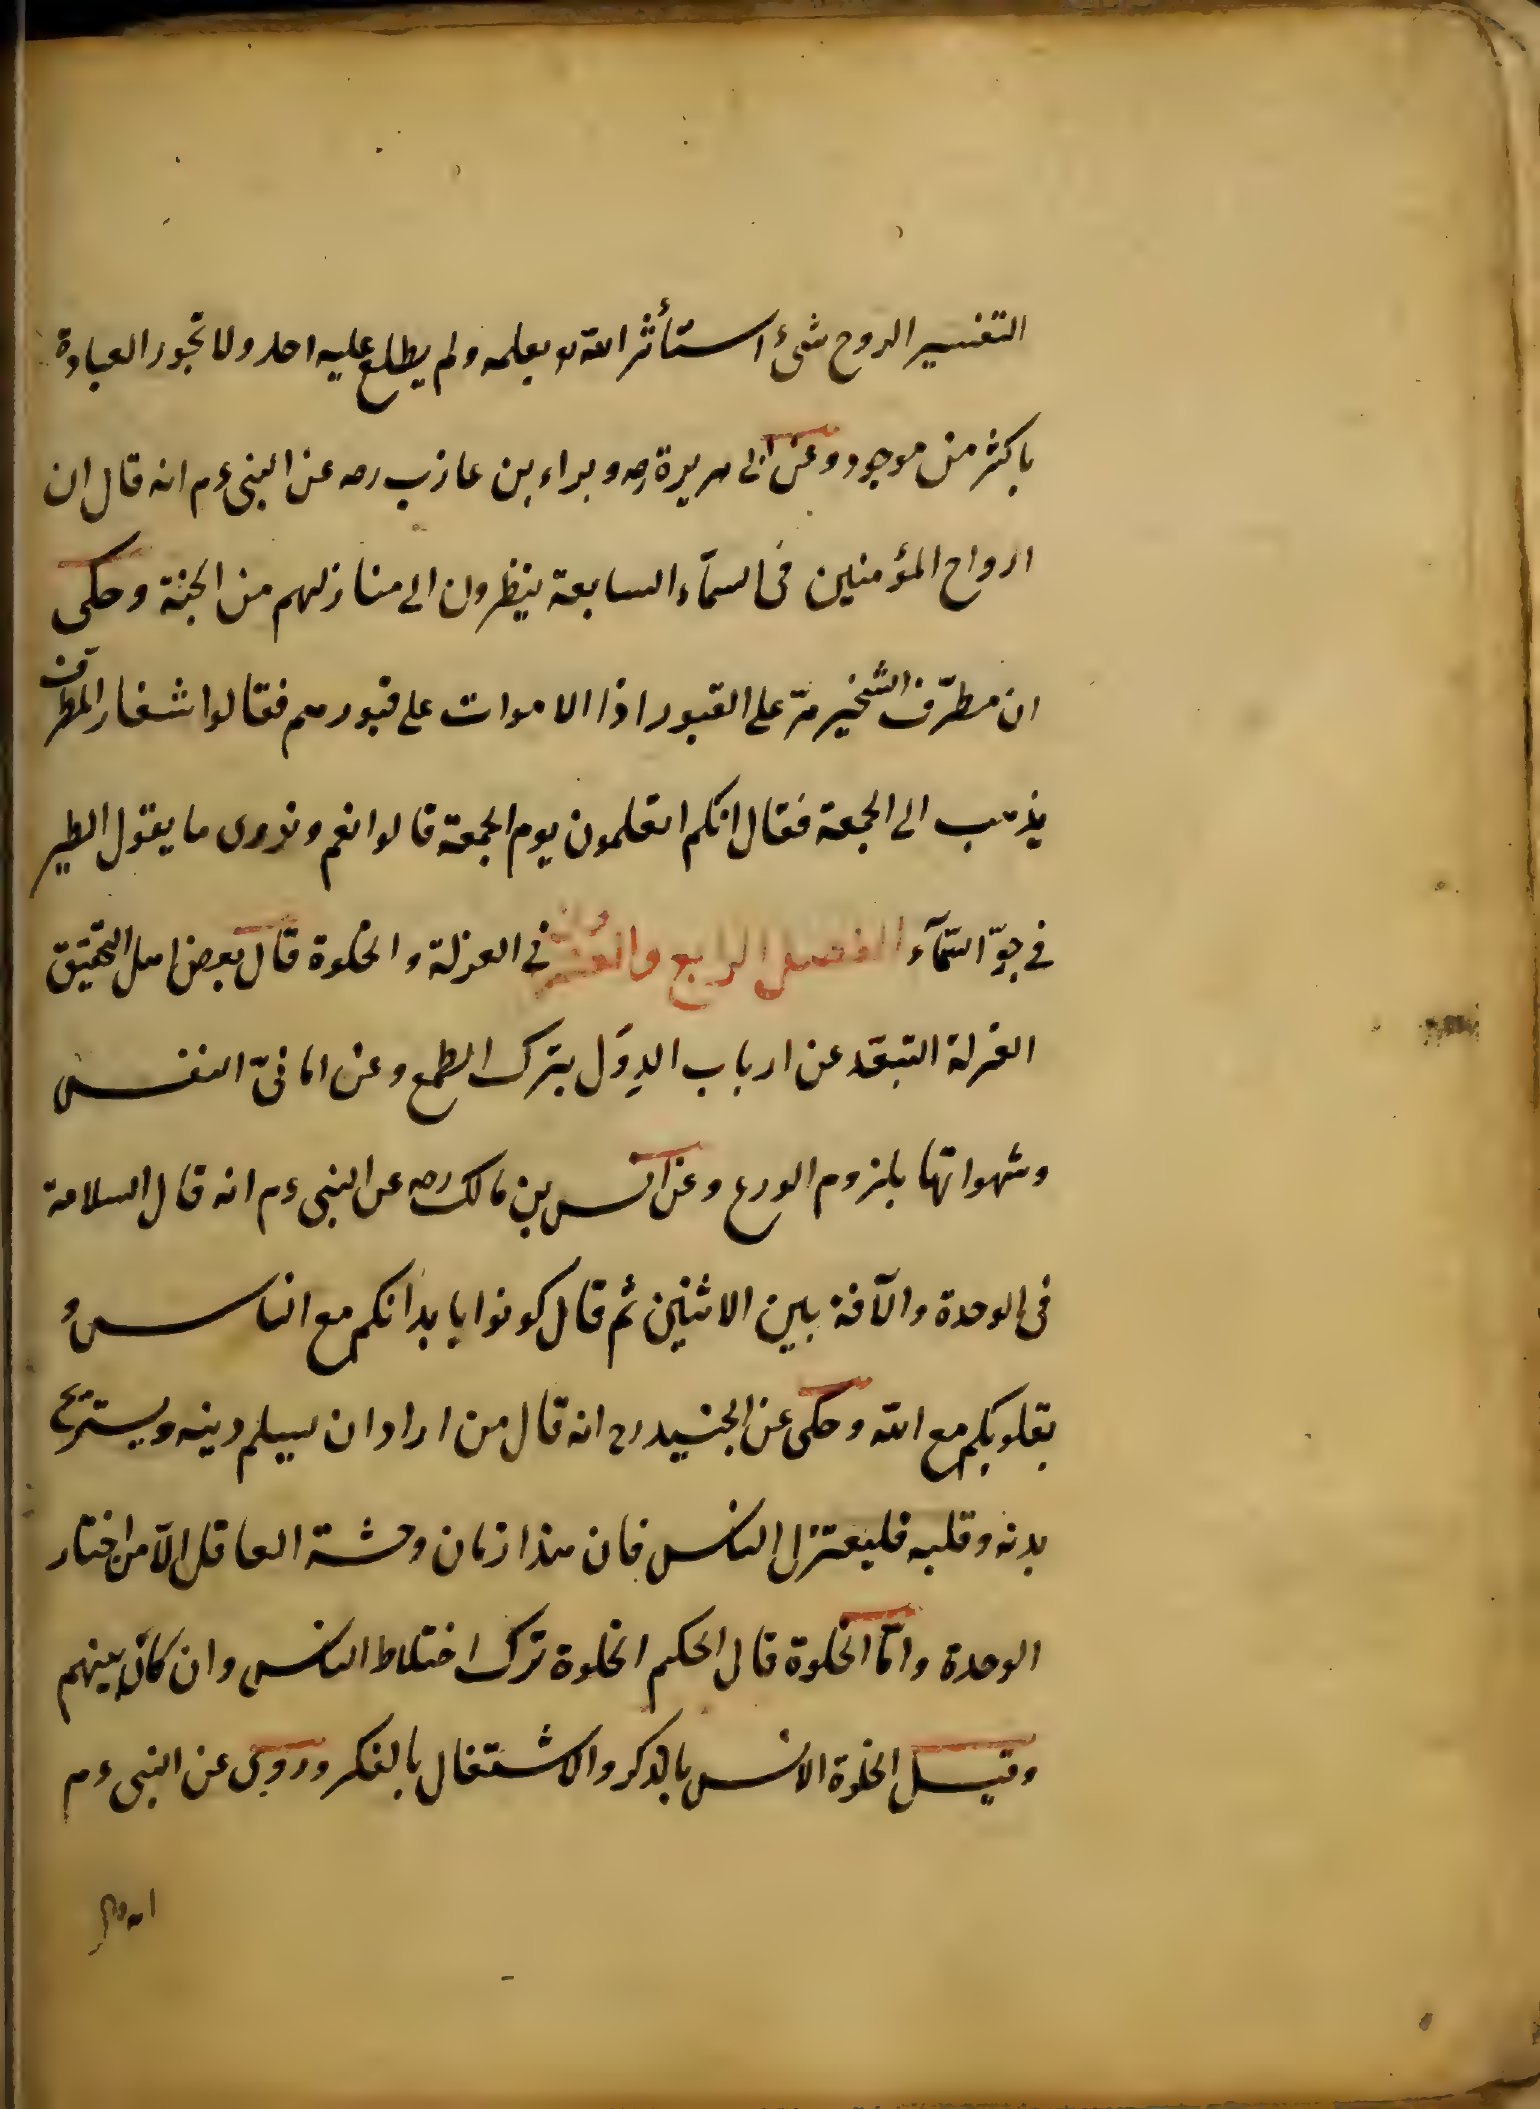 التفسير الروح شئ استأثر الله بعلمه ولم يطلع عليه احد ولا تجوز العبادة
باكثر من موجود وعن ابى هريرة رضه وبراء بن عازب رضه عن النبى ءم انه قال ان
ارواح المؤمنين فى السمآء السابعة ينظرون الى منازلهم من الجنة وحكى
ان مطرّف الشخير مرّ على القبور اذا الاموات على قبورهم فقالوا المطرف
يذهب الى الجمعة فقال انكم اتعلمون يوم الجمعة قالوا نعم وندرى ما يقول الطير
فى جوّ السّمآء الفصل الرابع والعشرون فى العزلة والخلوة قال بعض اهل التحقيق
العزلة التبعّد عن ارباب الدِوَل بترك الطمع وعن امانىّ النفس
وشهواتها بلزوم الورع وعن انس بن مالك رضه عن النبى ءم انه قال السلامة
فى الوحدة والآفة بين الاثنين ثم قال كونوا بابدانكم مع الناس و
بقلوبكم مع الله وحكى عن الجنيد رح انه قال من اراد ان يسلم دينه ويستريح
بدنه وقلبه فليعتزل الناس فان هذا زمان وحشة العاقل الّا من اختار
الوحدة وامّا الخلوة قال الحكيم الخلوة ترك اختلاط الناس وان كان بينهم
وقيل الخلوة الانس بالذكر والاشتغال بالفكر وروى عن النبى ءم